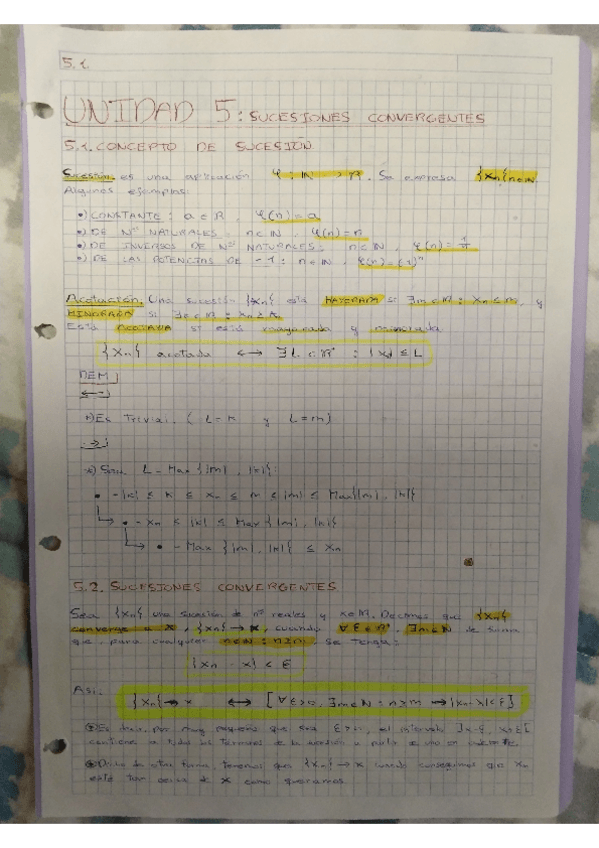 5.1.
UNIDAD 5: SUCESIONES CONVERGENTES
5.1. CONCEPTO DE SUCESIÓN
Sucesión: es una aplicación φ: ℕ → ℝ. Se expresa {xn}n∈ℕ.
Algunos ejemplos:
•) CONSTANTE: a ∈ ℝ, φ(n) = a
•) DE Nos NATURALES: n ∈ ℕ, φ(n) = n
•) DE INVERSOS DE Nos NATURALES: n ∈ ℕ, φ(n) = 1/n
•) DE LAS POTENCIAS DE -1: n ∈ ℕ, φ(n) =
Acotación: Una sucesión {xn} está MAYORADA si ∃m∈ℝ: xn ≤ m, y
MINORADA si
Está ACOTADA si está mayorada y minorada.
{xn} acotada ↔ ∃L ∈ ℝ⁺ : |xn| ≤ L
DEM
←
*) Es Trivial. (L = k y L = m)
→
*) Sean L = Max {|m|, |k|}:
• -|k| ≤ k ≤ xn ≤ m ≤ |m| ≤ Max{|m|, |k|}
• -xn ≤ |k| ≤ Max {|m|, |k|}
• -Max {|m|, |k|} ≤ xn
5.2. SUCESIONES CONVERGENTES
Sea {xn} una sucesión de nos reales y x∈ℝ. Decimos que {xn}
converge a x, {xn} → x, cuando ∀ε∈ℝ⁺, ∃m∈ℕ de forma
que, para cualquier n∈ℕ: n≥m se tenga:
|xn - x| < ε
Así:
{xn} → x ↔ [∀ε>0, ∃m∈ℕ: n≥m → |xn-x|<ε]
Es decir, por muy pequeño que sea ε>0, el intervalo ]x-ε, x+ε[
contiene a todos los términos de la sucesión a partir de uno en adelante.
Dicho de otra forma, tenemos que {xn} → x cuando conseguimos que xn
esté tan cerca de x como queramos.